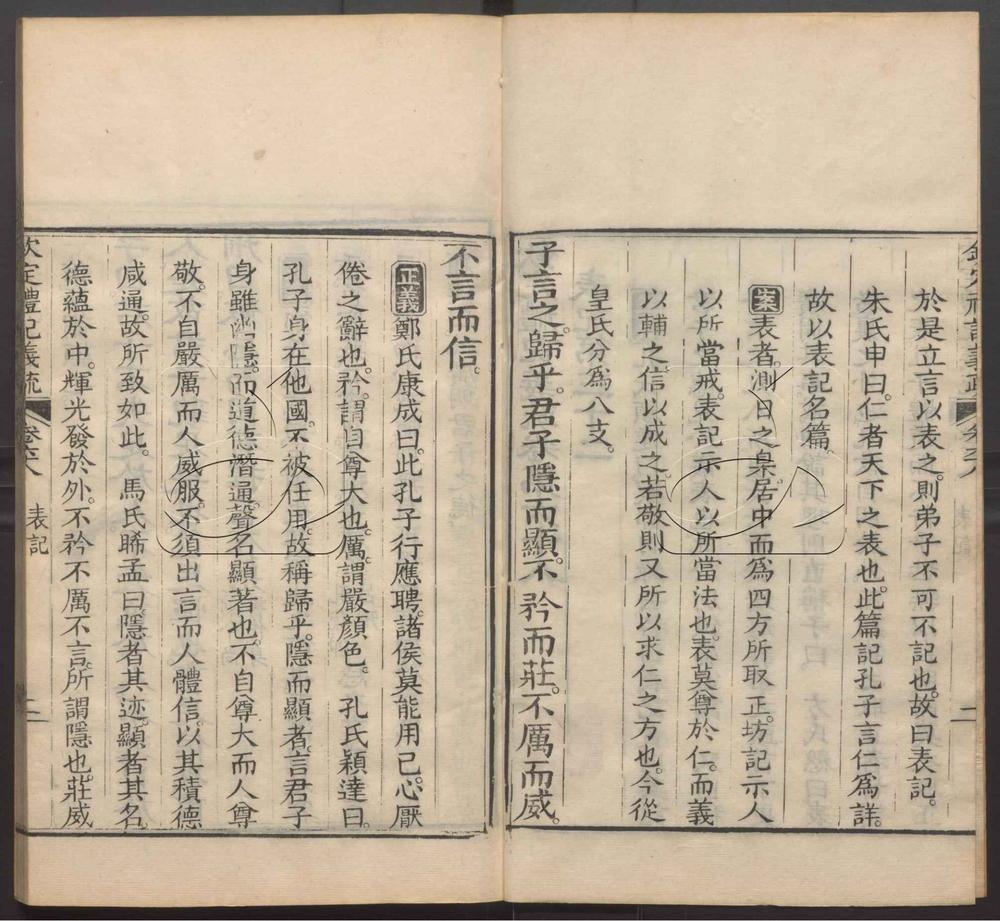 欽定禮記義疏 卷六八 表記 二
於是立言以表之。則弟子不可不記也。故曰表記。
朱氏申曰。仁者天下之表也。此篇記孔子言仁爲詳。
故以表記名篇。
案表者。測日之臬。居中而爲四方所取正。坊記示人
以所當戒。表記示人以所當法也。表莫尊於仁。而義
以輔之。信以成之。若敬則又所以求仁之方也。今從
皇氏分爲八支。
子言之。歸乎。君子隱而顯。不矜而莊。不厲而威。
不言而信。
正義鄭氏康成曰。此孔子行應聘。諸侯莫能用已。心厭
倦之辭也。矜。謂自尊大也。厲。謂嚴顏色。 孔氏穎達曰。
孔子身在他國。不被任用。故稱歸乎。隱而顯者。言君子
身雖幽隱。而道德潛通。聲名顯著也。不自尊大而人尊
敬。不自嚴厲而人威服。不須出言而人體信。以其積德
咸通。故所致如此。 馬氏睎孟曰。隱者其迹。顯者其名。
德蘊於中。輝光發於外。不矜不厲不言。所謂隱也。莊威
欽定禮記義疏 卷六八 表記 二